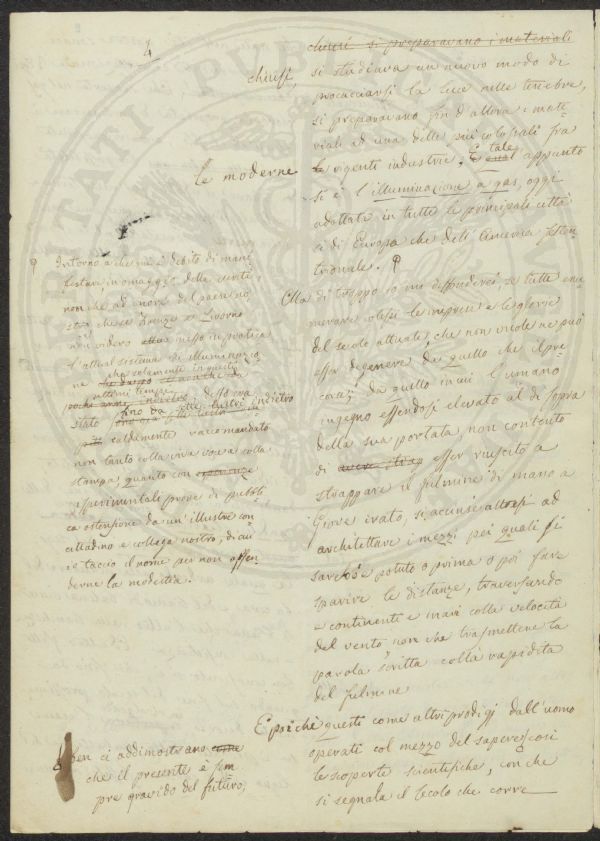 4
chinesi si preparavano i materiali
chinesi,
si studiava un nuovo modo di
procacciarsi la luce nelle tenebre,
si preparavano fin d'allora i mate-
riali ad una delle più colossali fra
le moderne
le vigenti industrie. E tale appunto
si è l'illuminazione a gas, oggi
adottata in tutte le principali città
e di Europa che dell'America setten-
trionale.
Ma di troppo io mi diffonderei, se tutte enu-
merare volessi le imprese e le glorie
del secolo attuale, che non vuole ne può
esser degenere da quello che il pre-
corse; da quello in cui l'umano
ingegno essendosi elevato al di sopra
della sua portata, non contento
di esser riuscito a
strappare il fulmine di mano a
Giove irato, si accinse altresì ad
architettare i mezzi pei quali si
sarebbe potuto o prima o poi fare
sparire le distanze, traversando
e continenti e mari colla velocità
del vento non che trasmettere la
parola scritta colla rapidità
del fulmine
E poichè questi come altri prodigj dall'uomo
operati col mezzo del sapere, così
le scoperte scientifiche, con che
si segnala il secolo che corre
Intorno a che mi è debito di mani
festare in omaggio della verità,
non che ad onore del paese no
stro, che se Firenze e Livorno
non videro messo in pratica
l'attual sistema di illuminazio
ne che solamente in questi
ultimi tempi,
pochi anni, desso era
stato fino da sette lustri indietro
più caldamente raccomandato
non tanto colla viva voce e colla
stampa, quanto con esperienze
sperimentali prove di pubbli
ca ostensione da un'illustre con
cittadino e collega nostro, di cui
io taccio il nome per non offen-
derne la modestia.
ben ci addimostrano come
che il presente è sem
pre gravido del futuro,